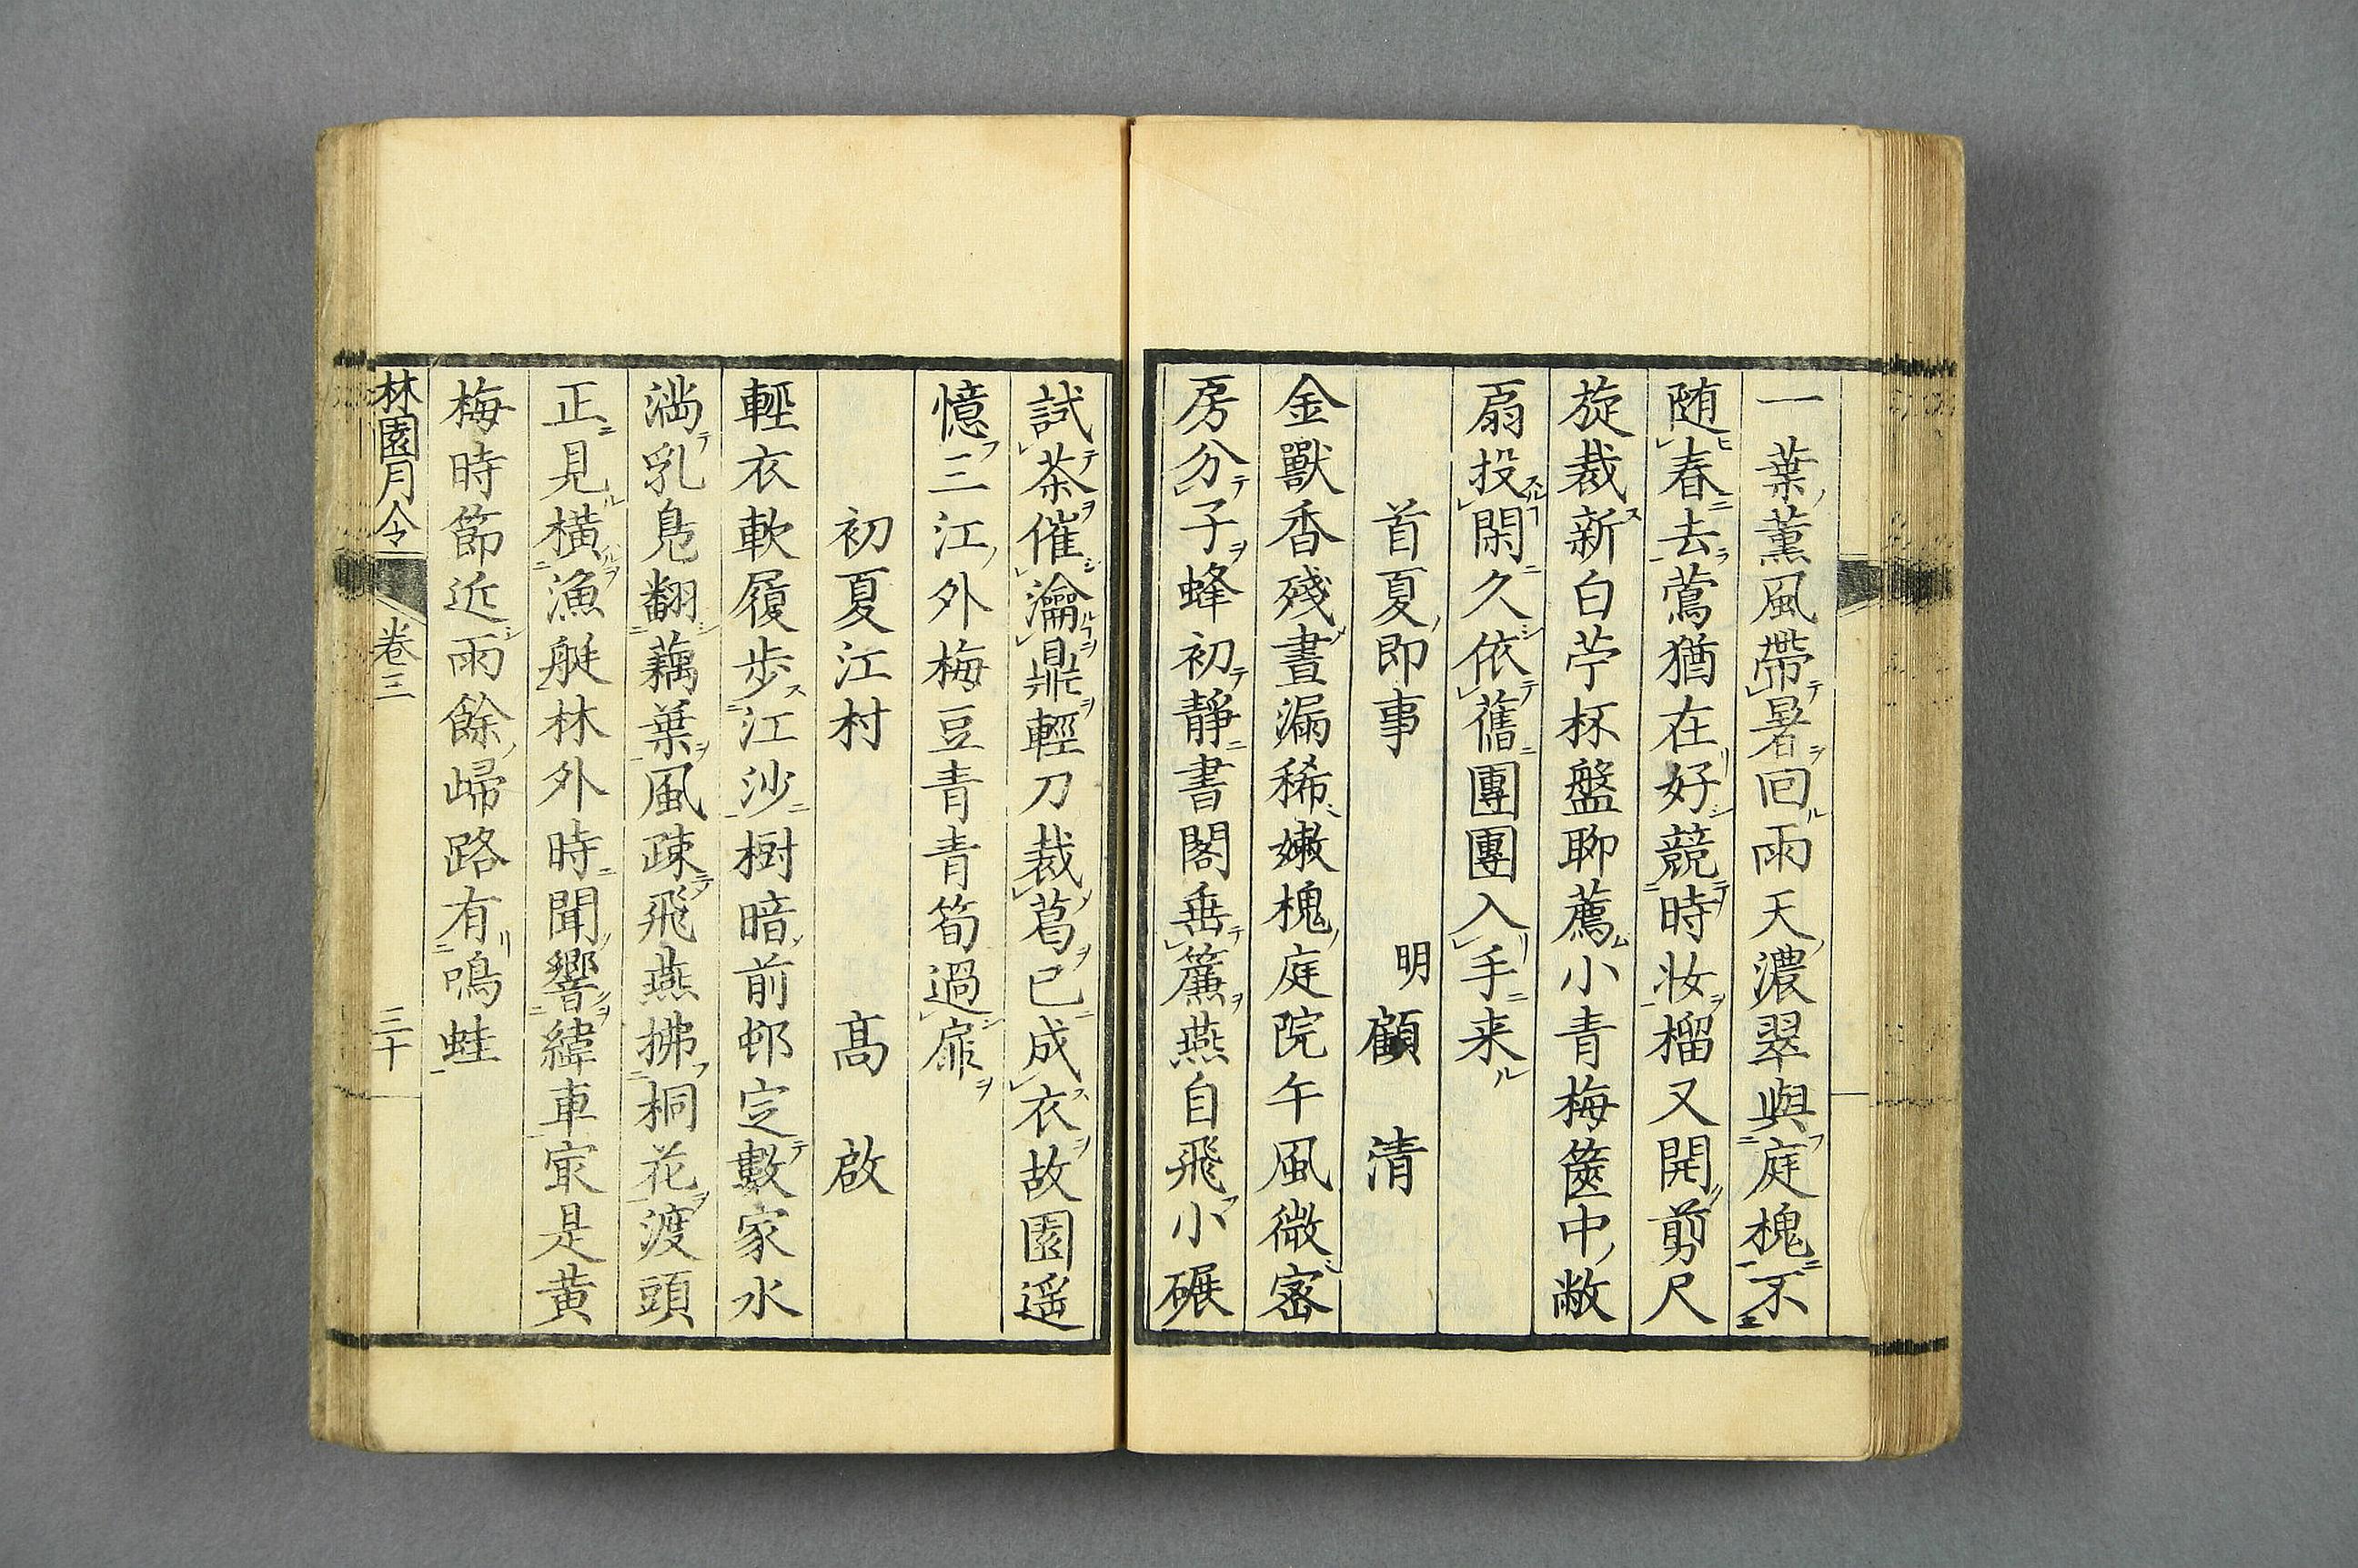 一葉薰風帶暑回雨天濃翠與庭槐不
随春去鶯猶在好競時妝榴又開剪尺
旋裁新白苧杯盤聊薦小青梅篋中敝
扇投閑久依舊團團入手来
首夏即事 明 顧 清
金獸香殘晝漏稀嫩槐庭院午風微蜜
房分子蜂初靜書閣垂簾燕自飛小碾
試茶催瀹鼎輕刀裁葛已成衣故園遥
憶三江外梅豆青青筍過扉
初夏江村 高 啟
輕衣軟履步江沙樹暗前邨定數家水
滿乳鳬翻藕葉風疎飛燕拂桐花渡頭
正見橫漁艇林外時聞響緯車最是黄
梅時節近雨餘歸路有鳴蛙
林園月令 卷三 三十